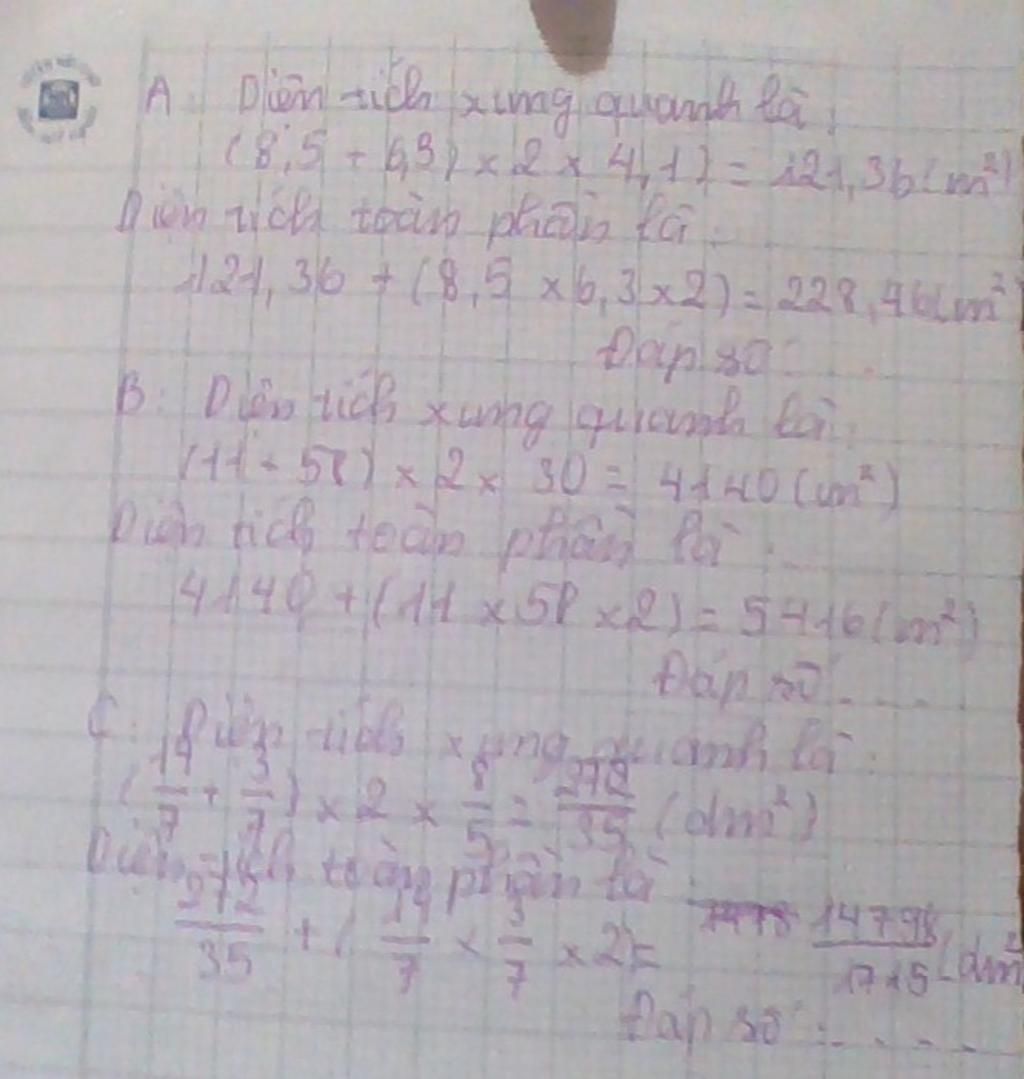 A: Diện tích xung quanh là:
(8,5 + 6,3) x 2 x 4,1) = 121,36 (m²)
Diện tích toàn phần là:
121,36 + (8,5 x 6,3 x 2) = 228,46 (m²)
Đáp số: ...
B: Diện tích xung quanh là:
(11 + 58) x 2 x 30 = 4140 (cm²)
Diện tích toàn phần là: ...
4140 + (11 x 58 x 2) = 5416 (cm²)
Đáp số: ...
C: Diện tích xung quanh là:
(14/7 + 3/7) x 2 x 8/5 = 272/35 (dm²)
Diện tích toàn phần là
272/35 + (14/7 x 3/7 x 2) = 14798/1715 (dm²
Đáp số: ....